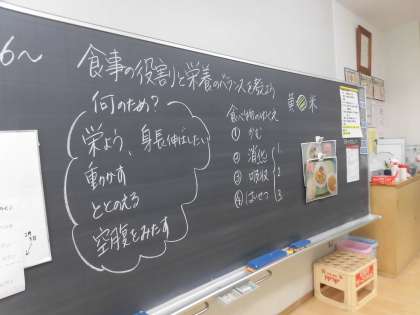 6〜
食事の役割と栄養のバランスを考えよう
何のため?
栄よう、身長伸ばしたい
動かす
ととのえる
空腹をみたす
食べ物のゆくえ
① かむ
② 消化
③ 吸収
④ はいせつ
1.
2
3
黄 米